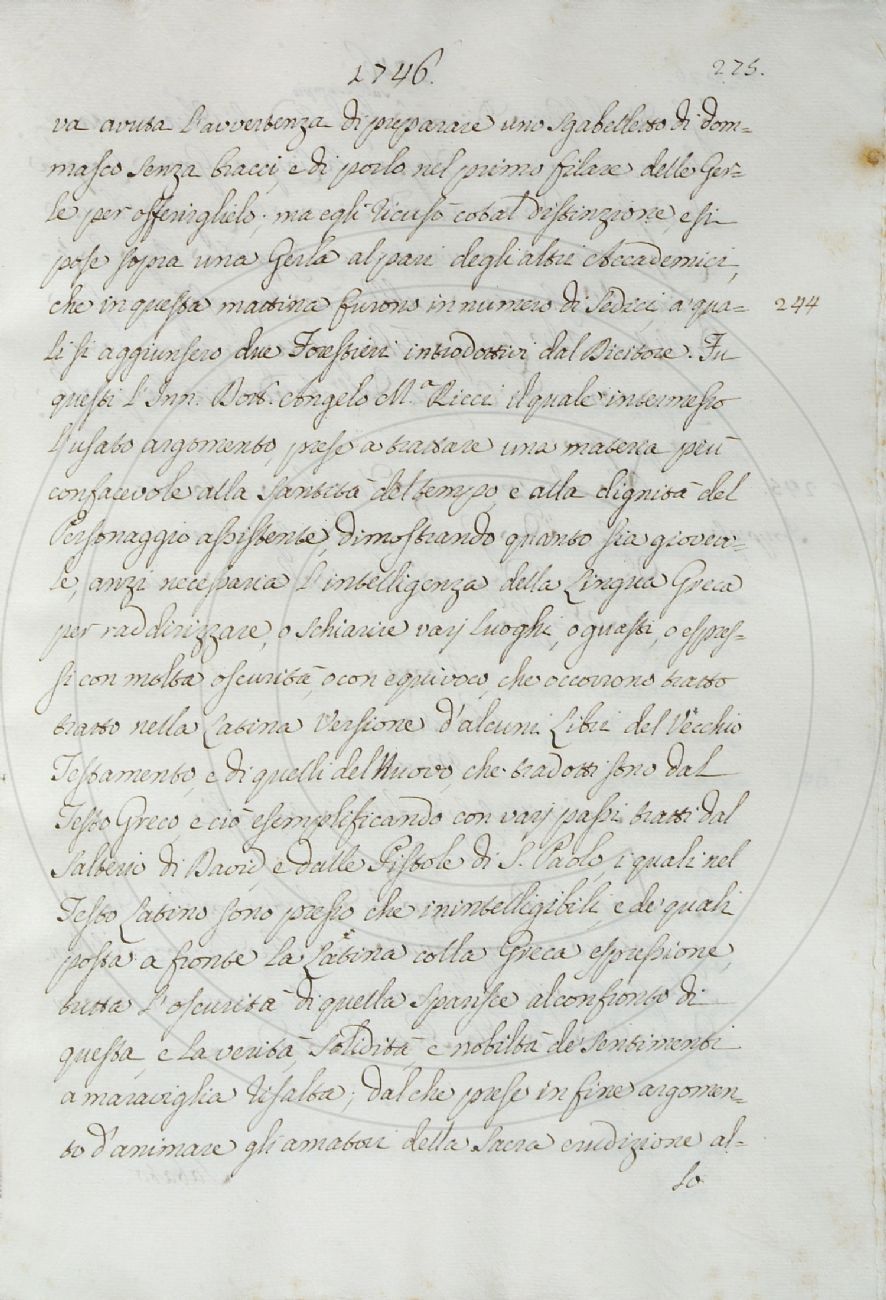 1746.
275.
va avuta l'avvertenza di preparare uno sgabelletto di dom=
masco senza bracci, e di porlo nel primo filare delle Ger=
le per offeriglielo; ma egli ricusò cotal distinzione, e si
pose sopra una Gerla al pari degli altri Accademici,
che in questa mattina furono in numero di Sedici, a' qua=
li si aggiunsero due Forestieri introdottivi dal Dicitore. Fu
questi l'Inn. Dott. Angelo M.ª Ricci il quale intermesso
l'usato argomento, prese a trattare una materia più
confacevole alla Santità del tempo, e alla dignità del
Personaggio assistente, dimostrando quanto sia giovevo=
le, anzi necessaria l'intelligenza della Lingua Greca
per raddirizzare, o schiarire varj luoghi, o guasti, o espres=
si con molta oscurità, o con equivoco, che occorrono tratto
tratto nella Latina Versione d'alcuni Libri del Vecchio
Testamento, e di quelli del Nuovo, che tradotti sono dal
Testo Greco, e ciò esemplificando con varj passi tratti dal
Salterio di David, e dalle Pistole di S. Paolo, i quali nel
Testo Latino sono presso che inintelligibili, e de' quali
posta a fronte la Latina colla Greca espressione,
tutta l'oscurità di quella sparisce al confronto di
questa, e la verità, solidità, e nobiltà de' sentimenti
a maraviglia risalta; dal che prese in fine argomen=
to d'animare gli amatori della Sacra erudizione al=
lo
244